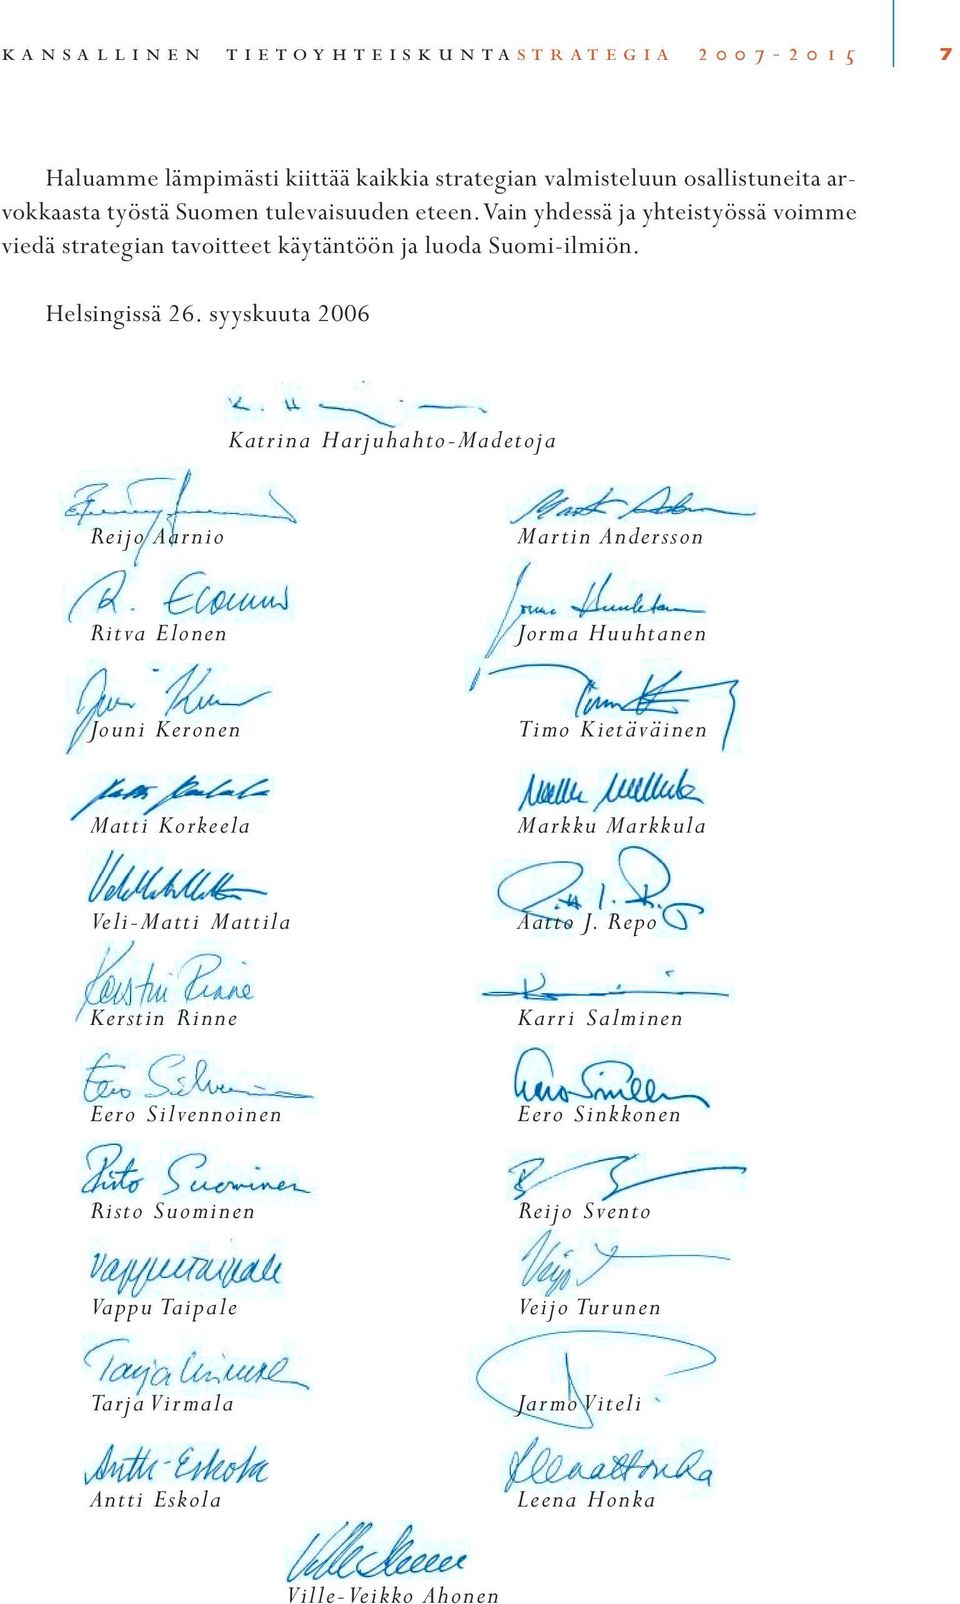 KANSALLINEN TIETOYHTEISKUNTASTRATEGIA 2007-2015 7
Haluamme lämpimästi kiittää kaikkia strategian valmisteluun osallistuneita ar-
vokkaasta työstä Suomen tulevaisuuden eteen. Vain yhdessä ja yhteistyössä voimme
viedä strategian tavoitteet käytäntöön ja luoda Suomi-ilmiön.
Helsingissä 26. syyskuuta 2006
Katrina Harjuhahto-Madetoja
Reijo Aarnio
Martin Andersson
Ritva Elonen
Jorma Huuhtanen
Jouni Keronen
Timo Kietäväinen
Matti Korkeela
Markku Markkula
Veli-Matti Mattila
Aatto J. Repo
Kerstin Rinne
Karri Salminen
Eero Silvennoinen
Eero Sinkkonen
Risto Suominen
Reijo Svento
Vappu Taipale
Veijo Turunen
Tarja Virmala
Jarmo Viteli
Antti Eskola
Leena Honka
Ville-Veikko Ahonen